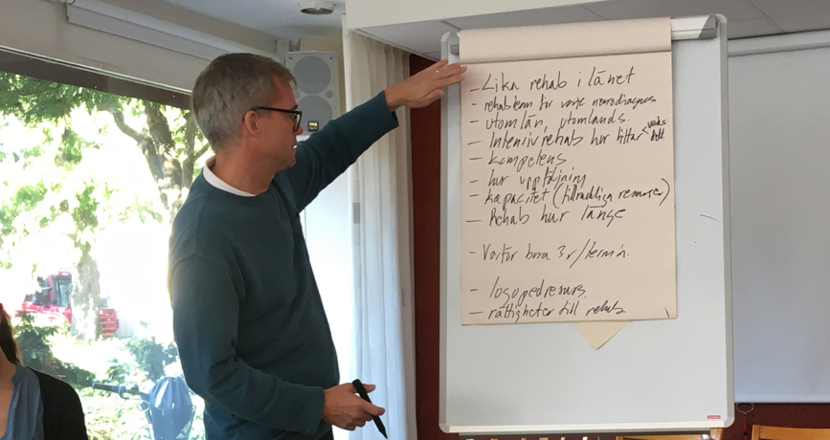 - Lika rehab i länet
- rehabteam för varje neurodiagnos
- utomlän, utomlands.
- Intensivrehab hur hittar
- kompetens
- hur uppföljning
- kapacitet (tillräckliga resurser)
- Rehab hur länge
- Varför bara 3 v/termin.
- logopedresurs.
- rättigheter till rehab